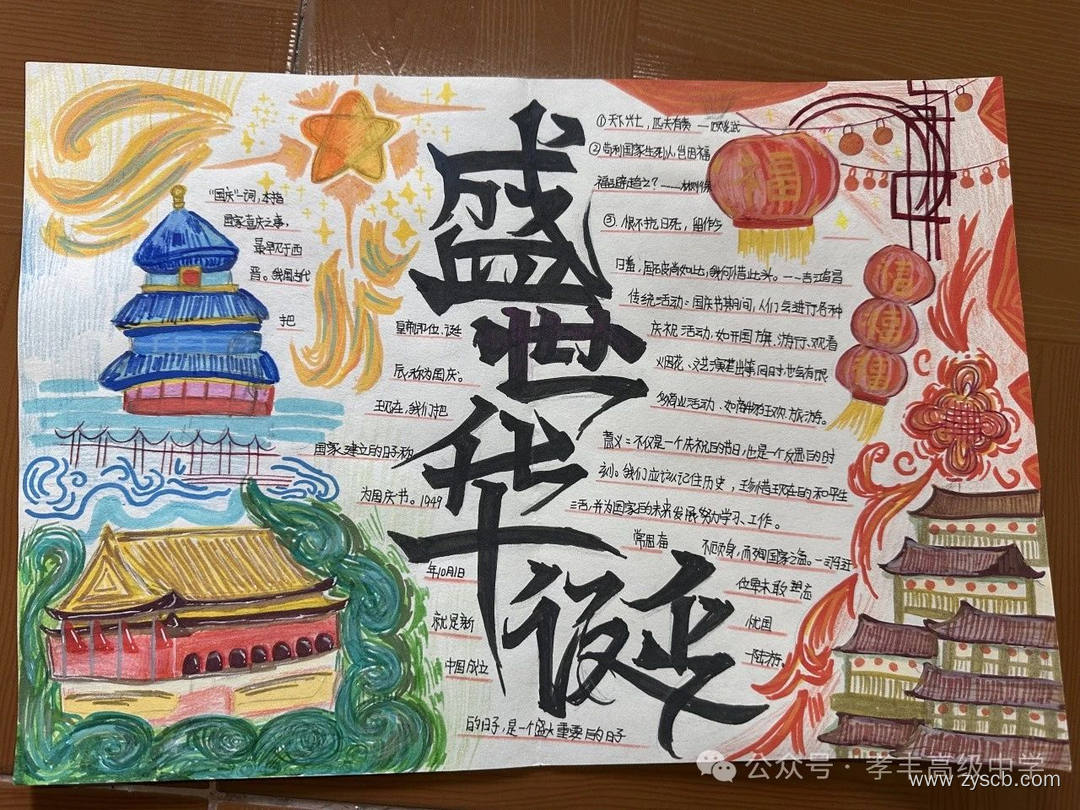 盛世华诞
"国庆"一词,本指
国家喜庆之事,
最早见于西
晋。我国古代
把
皇帝即位、诞
辰称为国庆。
现在,我们把
国家建立的日子称
为国庆节。1949
年10月1日
就是新
中国成立
的日子,是一个盛大重要的日子
①天下兴亡,匹夫有责 —顾炎武
②苟利国家生死以,岂因祸
福避趋之?——林则徐
③、恨不抗日死,留作今
日羞,国破尚如此,我何惜此头。——吉鸿昌
传统活动:国庆节期间,人们会进行各种
庆祝活动,如升国旗、游行、观看
烟花、文艺演出等,同时也会有很
多商业活动,如购物狂欢、旅游。
意义:不仅是一个庆祝的节日,也是一个反思的时
刻。我们应该记住历史,珍惜现在的和平生
活,并为国家的未来发展努力学习、工作。
常思奋 不顾身,而殉国家之急。—司马迁
位卑未敢忘
忧国
—陆游
福
福
禧
福
公众号·孝丰高级中学
www.zyscb.com